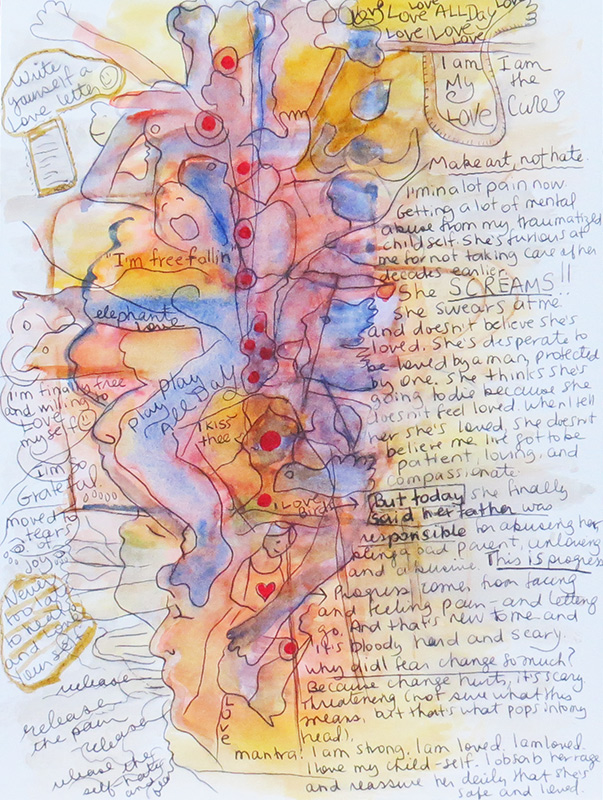 Love Love
Love Love ALL Day
Love Love
Love
Write
yourself a
love letter
I am
My
LOVE
I am
the
Cure
Make art, not hate.
I'm in a lot pain now
Getting a lot of mental
abuse from my traumatized
child self. She's furious at
me for not taking care of her
decades earlier.
She SCREAMS!!
She swears at me
and doesn't believe she's
loved. She's desperate to
be loved by a man, protected
by one. She thinks she's
going to die because she
doesn't feel loved. When I tell
her she's loved, she doesn't
believe me. I've got to be
patient, loving, and
compassionate.
But today she finally
said her father was
responsible for abusing her,
being a bad parent, unloving
and abusive. This is progress
Progress comes from facing
and feeling pain - and letting
go. And that's new to me and
it's bloody hard and scary.
Why did I fear change so much?
Because change hurt, it's scary
threatening (not sure what this
means, but that's what pops into my
head).
mantra: I am strong. I am loved. I am loved.
I love my child-self. I absorb her rage
and reassure her daily that she's
safe and loved.
"I'm free fallin"
elephant
love
play
play All Day
play
I KISS
thee
I LOVE
Birds
LOVE
I'm finally free
and willing to
Love
myself
I'm so
Grateful.
moved to
tears
of
joy
Never
too late
to heal
and Love
yourself
release
release
the pain
release
release the
self-hate
and
fear